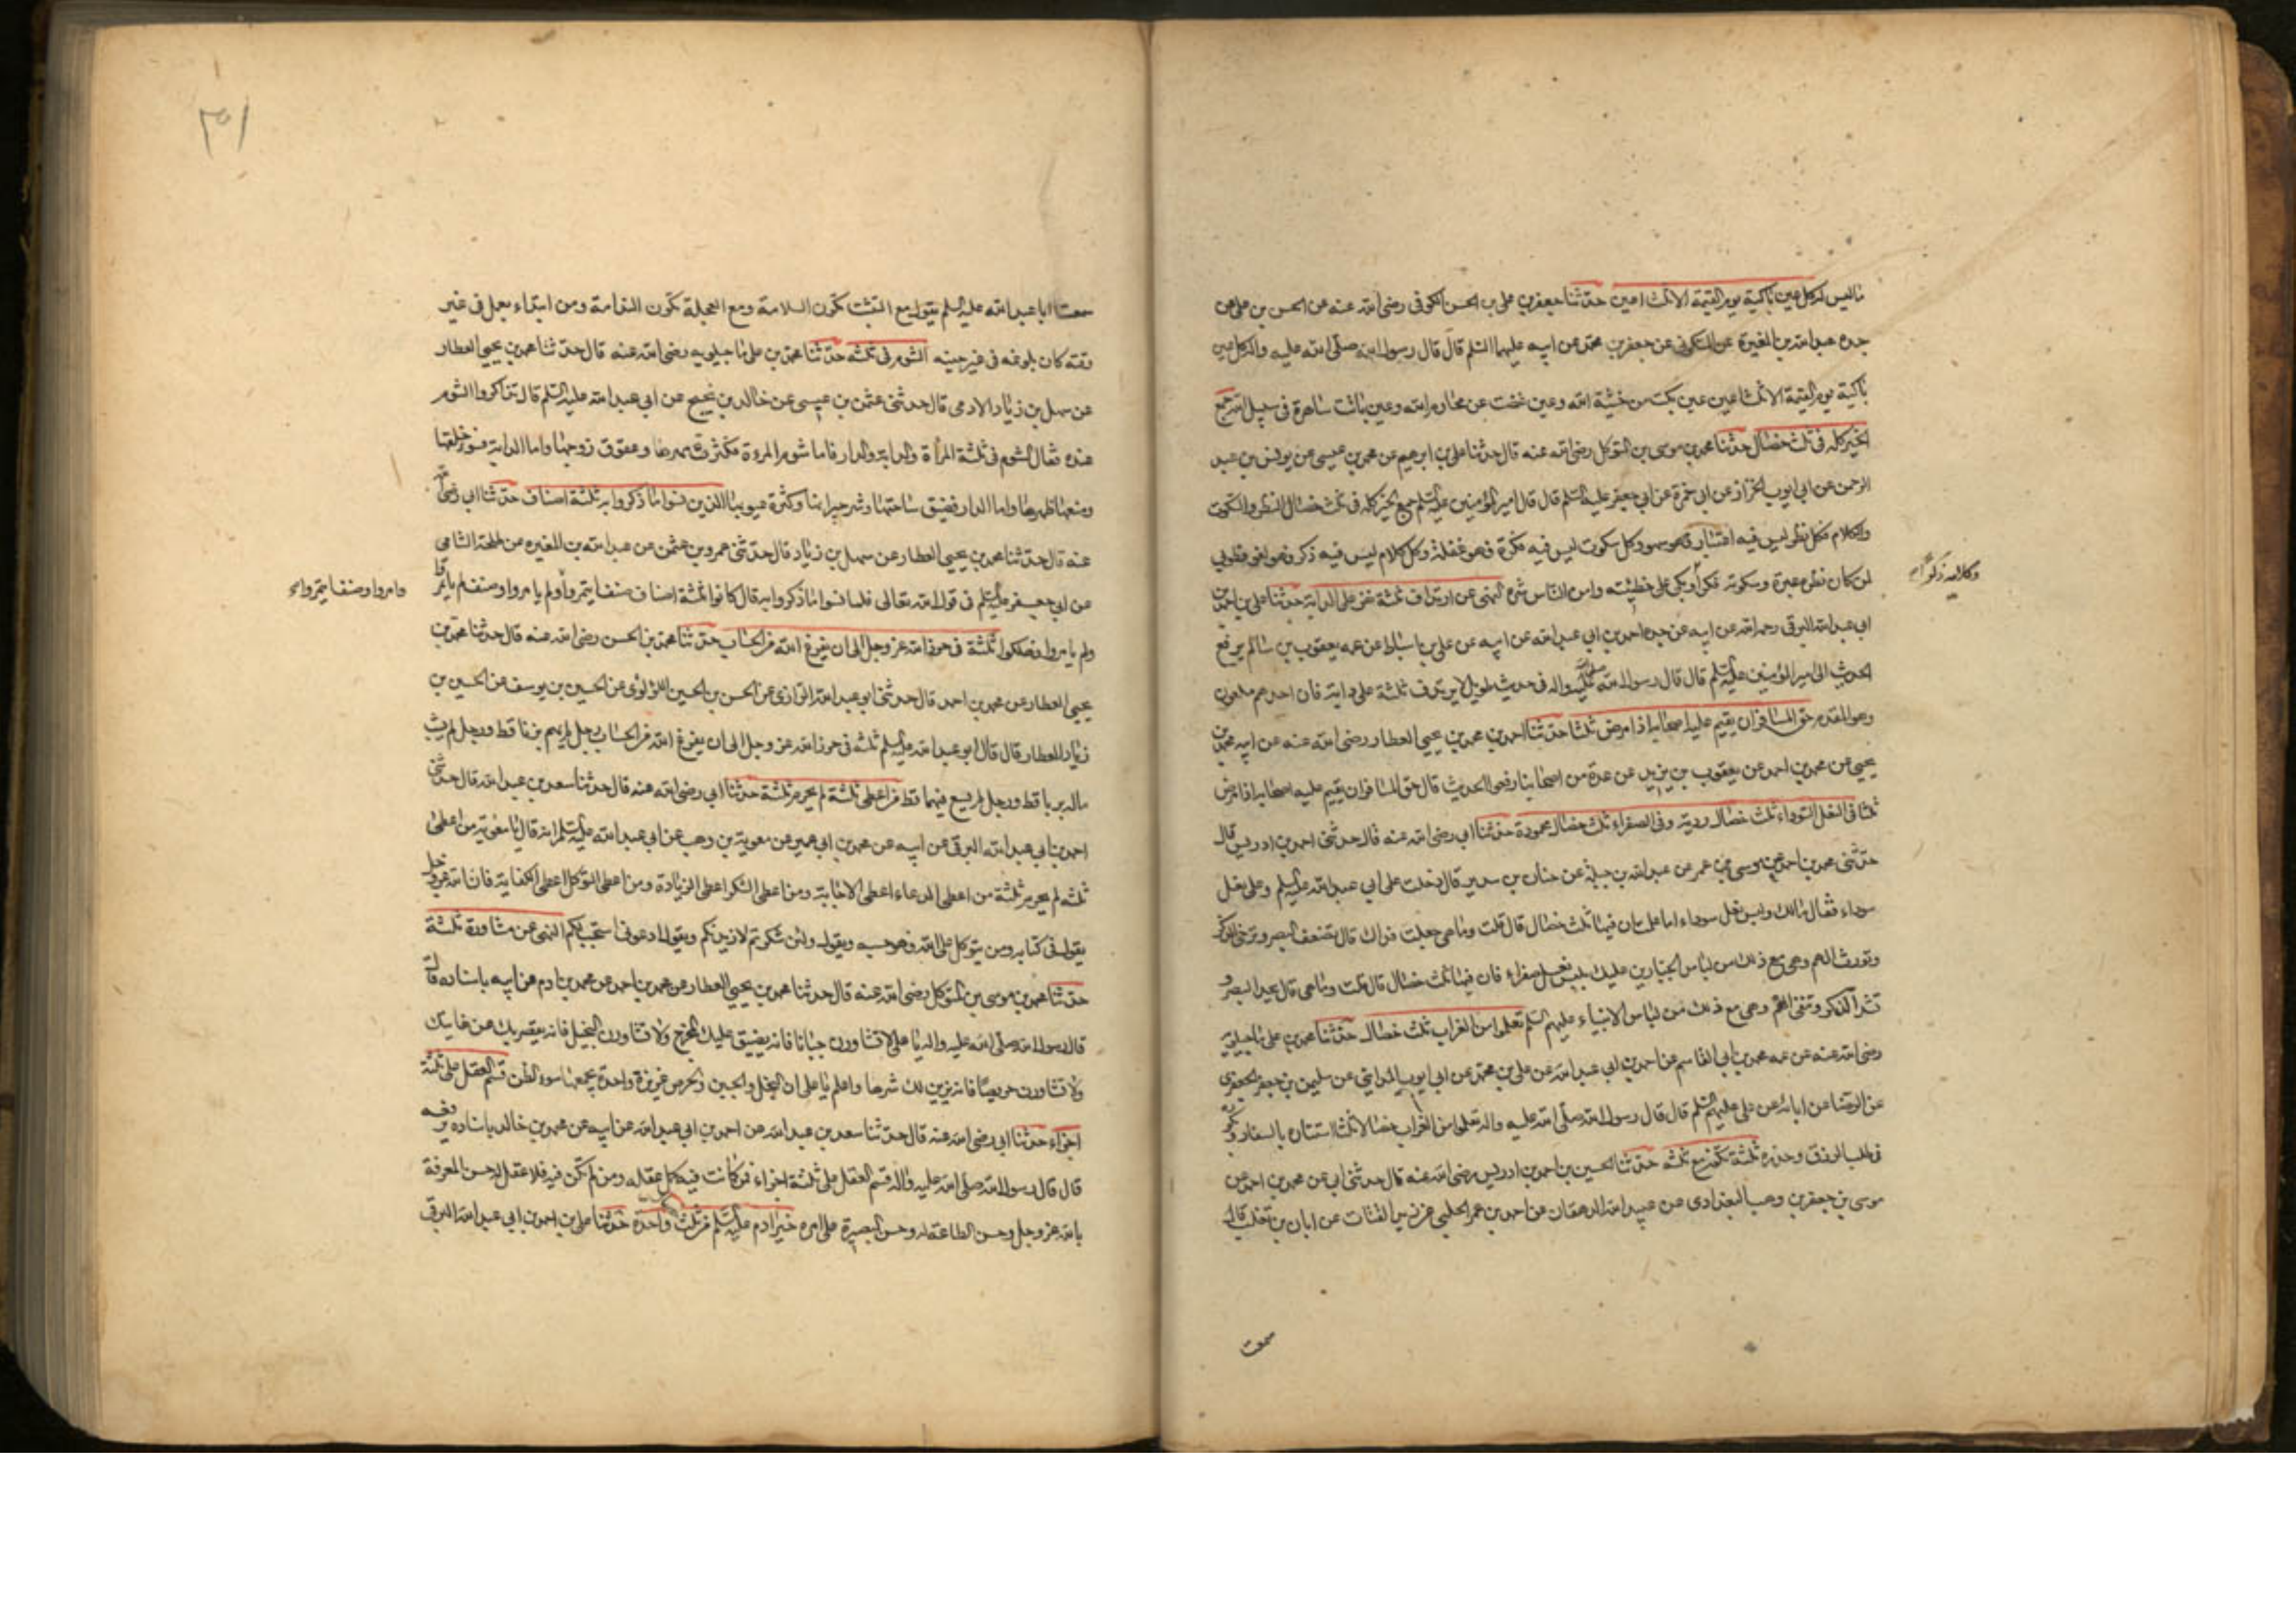 ما ليس كل عين باكية يوم القيمة الا ثلث اعين حدثنا جعفر بن علي بن الحسن الكوفي رضي الله عنه عن الحسن بن علي عن
جده عبد الله بن المغيرة عن السكوني عن جعفر بن محمد عن ابيه عليهما السلم قال قال رسول الله صلى الله عليه واله كل عين
باكية يوم القيمة الا ثلثة اعين عين بكت من خشية الله وعين غضت عن محارم الله وعين باتت ساهرة في سبيل الله جمع
الخير كله في ثلث خصال حدثنا محمد بن موسى بن المتوكل رضي الله عنه قال حدثنا علي بن ابرهيم عن محمد بن عيسى عن يونس بن عبد
الرحمن عن ابي ايوب الخزاز عن ابي حمزة عن ابي جعفر عليه السلم قال قال امير المؤمنين عليه السلم جمع الخير كله في ثلث خصال النظر والسكوت
والكلام فكل نظر ليس فيه اعتبار فهو سهو وكل سكوت ليس فيه فكرة فهو غفلة وكل كلام ليس فيه ذكر فهو لغو فطوبى
لمن كان نظره عبرة وسكوته فكرا وبكى على خطيئته وامن الناس شره النهي عن ارتداف ثلثة نفر على الدابة حدثنا علي بن احمد بن
ابي عبد الله البرقي رحمه الله عن ابيه عن جده احمد بن ابي عبد الله عن ابيه عن علي بن اسباط عن عمه يعقوب بن سالم يرفع
الحديث الى امير المؤمنين عليه السلم قال قال رسول الله صلى الله عليه واله في حديث طويل لا يرتدف ثلثة على دابة فان احدهم ملعون
وهو المقدم حق المسافر ان يقيم عليه اصحابه اذا مرض ثلثا حدثنا احمد بن محمد بن يحيى العطار رضي الله عنه عن ابيه محمد بن
يحيى عن محمد بن احمد عن يعقوب بن يزيد عن عدة من اصحابنا رفعوا الحديث قال حق المسافر ان يقيم عليه اصحابه اذا مرض
ثلثا في النعل السوداء ثلث خصال ردية وفي الصفراء ثلث خصال محمودة حدثنا ابي رضي الله عنه قال حدثني احمد بن ادريس قال
حدثني محمد بن احمد عن موسى بن عمر عن عبد الله بن جبلة عن حنان بن سدير قال دخلت على ابي عبد الله عليه السلم وعلي نعل
سوداء فقال مالك ولبس نعل سوداء اما علمت ان فيها ثلث خصال قال قلت وما هي جعلت فداك قال تضعف البصر وترخي الذكر
وتورث الهم وهي مع ذلك من لباس الجبارين عليك بلبس نعل صفراء فان فيها ثلث خصال قال قلت وما هي قال تحد البصر و
تشد الذكر وتنفي الهم وهي مع ذلك من لباس الانبياء عليهم السلم تعلموا من الغراب ثلث خصال حدثنا محمد بن علي ماجيلويه
رضي الله عنه عن عمه محمد بن ابي القاسم عن احمد بن ابي عبد الله عن علي بن محمد عن ابي ايوب المدايني عن سليمن بن جعفر الجعفري
عن الرضا عن ابائه عن علي عليهم السلم قال قال رسول الله صلى الله عليه واله تعلموا من الغراب خصالا ثلثا استتاره بالسفاد وبكوره
في طلب الرزق وحذره ثلثة تكون مع ثلثة حدثنا الحسين بن احمد بن ادريس رضي الله عنه قال حدثني ابي عن محمد بن احمد عن
موسى بن جعفر بن وهب البغدادي عن عبيد الله الدهقان عن احمد بن عمر الحلبي عن زيد القتات عن ابان بن تغلب قال
سمعت
وكلامه ذكرا
سمعت ابا عبد الله عليه السلم يقول مع التثبت تكون السلامة ومع العجلة تكون الندامة ومن ابتداء بعمل في غير
وقته كان بلوغه في غير حينه الشوم في ثلثة حدثنا محمد بن علي ماجيلويه رضي الله عنه قال حدثنا محمد بن يحيى العطار
عن سهل بن زياد الادمي قال حدثني عثمن بن عيسى عن خالد بن نجيح عن ابي عبد الله عليه السلم قال تذاكروا الشوم
عنده فقال الشوم في ثلثة المرأة والدابة والدار فاما شوم المروة فكثرة مهرها وعقوق زوجها واما الدابة فسوء خلقها
ومنعها ظهرها واما الدار فضيق ساحتها وشر جيرانها وكثرة عيوبها الذين نسوا ما ذكروا به ثلثة اصناف حدثنا ابي رضي الله
عنه قال حدثنا محمد بن يحيى العطار عن سهل بن زياد قال حدثني عمرو بن عثمن عن عبد الله بن المغيره عن طلحة الشامي
عن ابي جعفر عليه السلم في قول الله تعالى فلما نسوا ما ذكروا به قال كانوا ثلثة اصناف صنف ايتمروا ولم يامروا وصنف لم ياتمروا
ولم يامروا فهلكوا ثلثة في حرز الله عز وجل الى ان يفرغ الله من الحساب حدثنا محمد بن الحسن رضي الله عنه قال حدثنا محمد بن
يحيى العطار عن محمد بن احمد قال حدثني ابو عبد الله الرازي عن الحسن بن الحسين اللؤلؤي عن الحسين بن يوسف عن الحسين بن
زياد العطار قال قال ابو عبد الله عليه السلم ثلثة في حرز الله عز وجل الى ان يفرغ الله من الحساب رجل لم يهم بزنا قط ورجل لم يشب
ماله بربا قط ورجل لم يسع فيهما قط من اعطى ثلثة لم يحرم ثلثة حدثنا ابي رضي الله عنه قال حدثنا سعد بن عبد الله قال حدثني
احمد بن ابي عبد الله البرقي عن ابيه عن محمد بن ابي عمير عن معوية بن وهب عن ابي عبد الله عليه السلم انه قال يا معوية من اعطى
ثلثه لم يحرم ثلثة من اعطى الدعاء اعطى الاجابة ومن اعطى الشكر اعطى الزيادة ومن اعطى التوكل اعطى الكفاية فان الله عز وجل
يقول في كتابه ومن يتوكل على الله فهو حسبه ويقول ولئن شكرتم لازيدنكم ويقول ادعوني استجب لكم النهي عن مشاورة ثلثة
حدثنا محمد بن موسى بن المتوكل رضي الله عنه قال حدثنا محمد بن يحيى العطار عن محمد بن احمد عن محمد بن ادم عن ابيه باسناده قال
قال رسول الله صلى الله عليه واله يا علي لا تشاورن جبانا فانه يضيق عليك المخرج ولا تشاورن البخيل فانه يقصر بك عن غايتك
ولا تشاورن حريصا فانه يزين لك شرها واعلم يا علي ان البخل والجبن والحرص غريزة واحدة يجمعها سوء الظن قسم العقل على ثلثة
اجزاء حدثنا ابي رضي الله عنه قال حدثنا سعد بن عبد الله عن احمد بن ابي عبد الله عن ابيه عن محمد بن خالد باسناده يرفعه
قال قال رسول الله صلى الله عليه واله قسم العقل على ثلثة اجزاء فمن كانت فيه كمل عقله ومن لم تكن فيه فلا عقل له حسن المعرفة
بالله عز وجل وحسن الطاعة له وحسن البصيرة على امره خير ادم عليه السلم من ثلث واحدة حدثنا علي بن احمد بن ابي عبد الله البرقي
وامروا وصنفا يتمروا